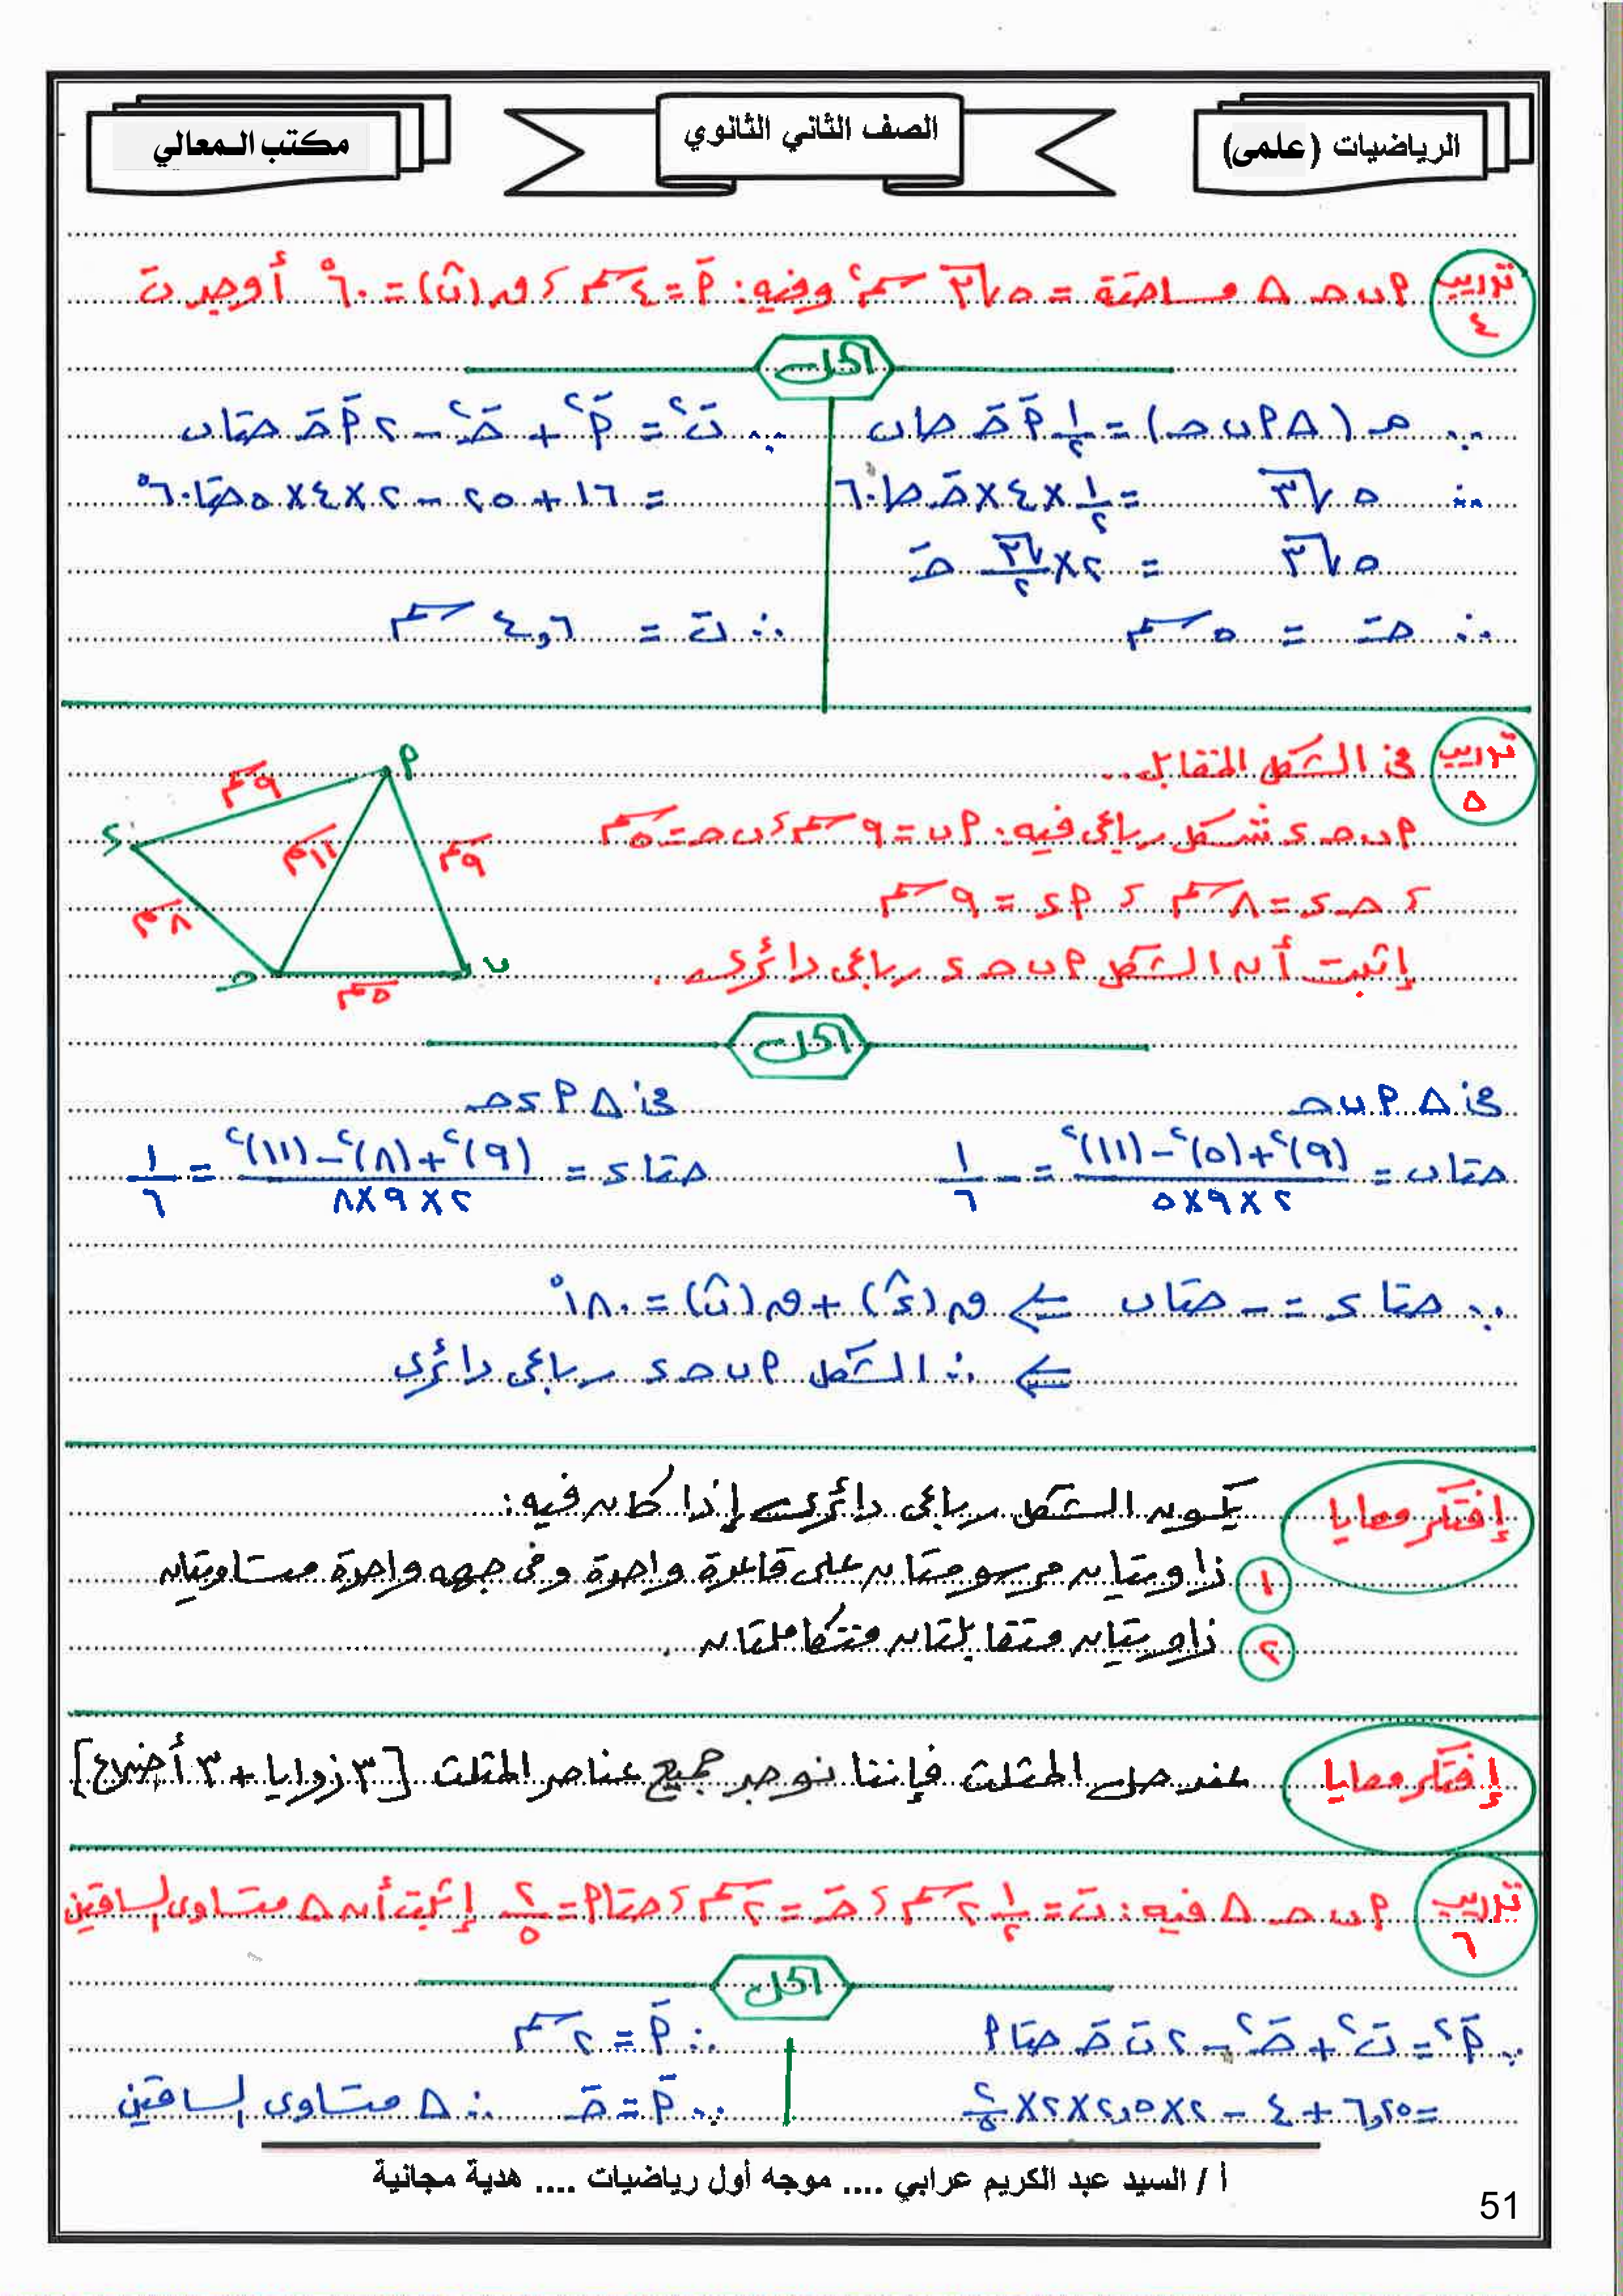 الرياضيات (علمى)
الصف الثاني الثانوي
مكتب المعالي
تدريب ٤
أ ب حـ Δ مساحته = ٥√٣ سم٢ وفيه: أَ = ٤ سم ، ق(بَ) = ٦٠° أوجد بَ
الحل
∵ م (Δ أ ب حـ) = ١/٢ أَ حـَ حا ب
∴ ٥√٣ = ١/٢ × ٤ × حـَ حا ٦٠
٥√٣ = ٢ × √٣/٢ حـَ
∴ حـَ = ٥ سم
∵ بَ٢ = أَ٢ + حـَ٢ − ٢ أَ حـَ حتا ب
= ١٦ + ٢٥ − ٢ × ٤ × ٥ حتا ٦٠°
∴ بَ = ٤,٦ سم
تدريب ٥
فى الشكل المقابل...
أ ب حـ ء شكل رباعى فيه: أ ب = ٩ سم ، ب حـ = ٥ سم
، حـ ء = ٨ سم ، أ ء = ٩ سم
إثبت أن الشكل أ ب حـ ء رباعى دائرى.
أ
٩ سم
ء
١١ سم
٩ سم
٨ سم
حـ
ب
٥ سم
الحل
فى Δ أ ب حـ
حتا ب = (٩)٢ + (٥)٢ − (١١)٢ / ٢ × ٩ × ٥ = − ١/٦
فى Δ أ ء حـ
حتا ء = (٩)٢ + (٨)٢ − (١١)٢ / ٢ × ٩ × ٨ = ١/٦
∵ حتا ء = − حتا ب ⇐ ق(ء^) + ق(ب^) = ١٨٠°
⇐ ∴ الشكل أ ب حـ ء رباعى دائرى
إفتكر معايا
يكون الشكل رباعى دائرى إذا كان فيه:
١ زاويتان مرسومتان على قاعدة واحدة وفى جهه واحدة متساويتان
٢ زاويتان متقابلتان متكاملتان.
إفتكر معايا
عند حل المثلث فإننا نوجد جميع عناصر المثلث [٣ زوايا + ٣ أضلاع]
تدريب ٦
أ ب حـ Δ فيه: بَ = ٢ ١/٢ سم ، حـَ = ٢ سم ، حتا أ = ٢/٥ إثبت أن Δ متساوى الساقين
الحل
∵ أَ٢ = بَ٢ + حـَ٢ − ٢ بَ حـَ حتا أ
= ٦,٢٥ + ٤ − ٢ × ٢,٥ × ٢ × ٢/٥
∴ أَ = ٢ سم
∵ أَ = حـَ ∴ Δ متساوى الساقين
أ / السيد عبد الكريم عرابي .... موجه أول رياضيات .... هدية مجانية
51